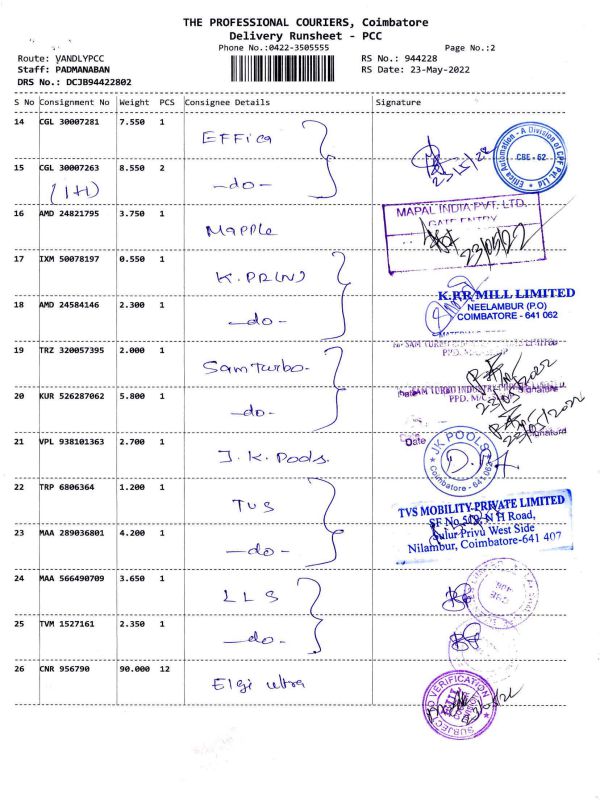 THE PROFESSIONAL COURIERS, Coimbatore
Delivery Runsheet - PCC
Phone No.:0422-3505555 Page No.:2
Route: VANDLYPCC RS No.: 944228
Staff: PADMANABAN RS Date: 23-May-2022
DRS No.: DCJB94422802
S No Consignment No Weight PCS Consignee Details Signature
14 CGL 30007281 7.550 1 Effica 23/5/22
Effica Automation - A Division of CPF Pvt. Ltd.
CBE - 62
15 CGL 30007263 8.550 2 -do-
16 AMD 24821795 3.750 1 Mapple
MAPAL INDIA PVT. LTD.
GATE ENTRY
23/05/22
17 IXM 50078197 0.550 1 K.PR(N)
K.P.R MILL LIMITED
NEELAMBUR (P.O)
COIMBATORE - 641 062
18 AMD 24584146 2.300 1 -do-
19 TRZ 320057395 2.000 1 Sam Turbo-
23/05/2022
20 KUR 526287062 5.800 1 -do-
Signature
23/05/2022
Date
21 VPL 938101363 2.700 1 J.K. Pools.
JK POOLS
Coimbatore - 641 062
22 TRP 6806364 1.200 1 TVS
TVS MOBILITY PRIVATE LIMITED
N H Road,
Sulur Privu West Side
Nilambur, Coimbatore-641 407
23 MAA 289036801 4.200 1 -do-
24 MAA 566490709 3.650 1 LLS
25 TVM 1527161 2.350 1 -do-
26 CNR 956790 90.000 12 Elgi ultra
SUBJECT TO VERIFICATION